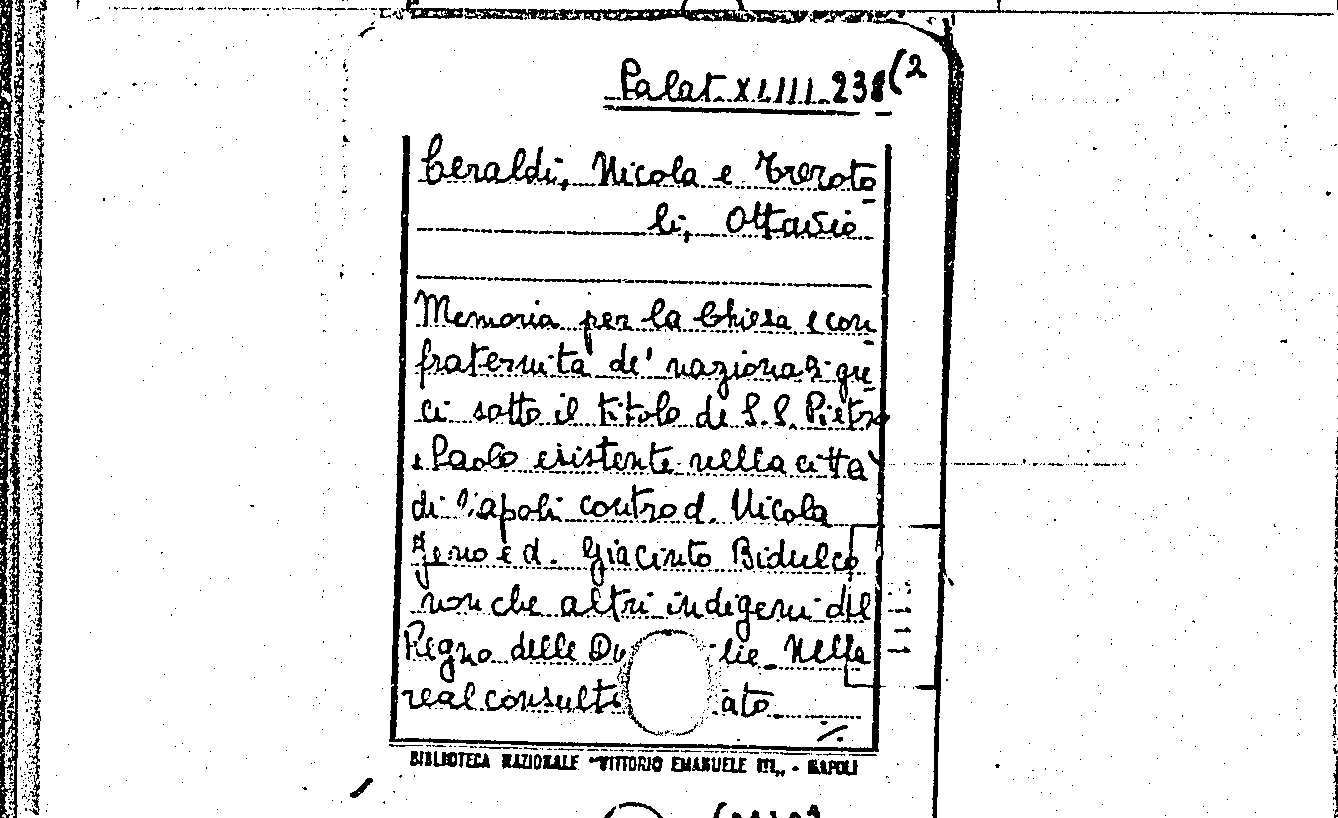 Palat. XLIII. 238 (2
Ceraldi, Nicola e Treroto
li, Ottavio
Memoria per la Chiesa e con
fraternita de' nazionali gre
ci sotto il titolo di S.S. Pietro
e Paolo esistente nella città
di Napoli contro d. Nicola
Zeno e d. Giacinto Bidulco
non che altri indigeni del
Regno delle Du lie. Nella
real consulta ato
%.
BIBLIOTECA NAZIONALE "VITTORIO EMANUELE III„ - NAPOLI